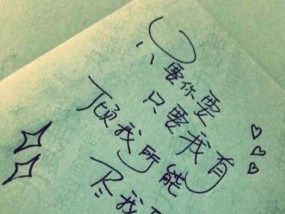 只要你要
只要我有
倾我所能
尽我